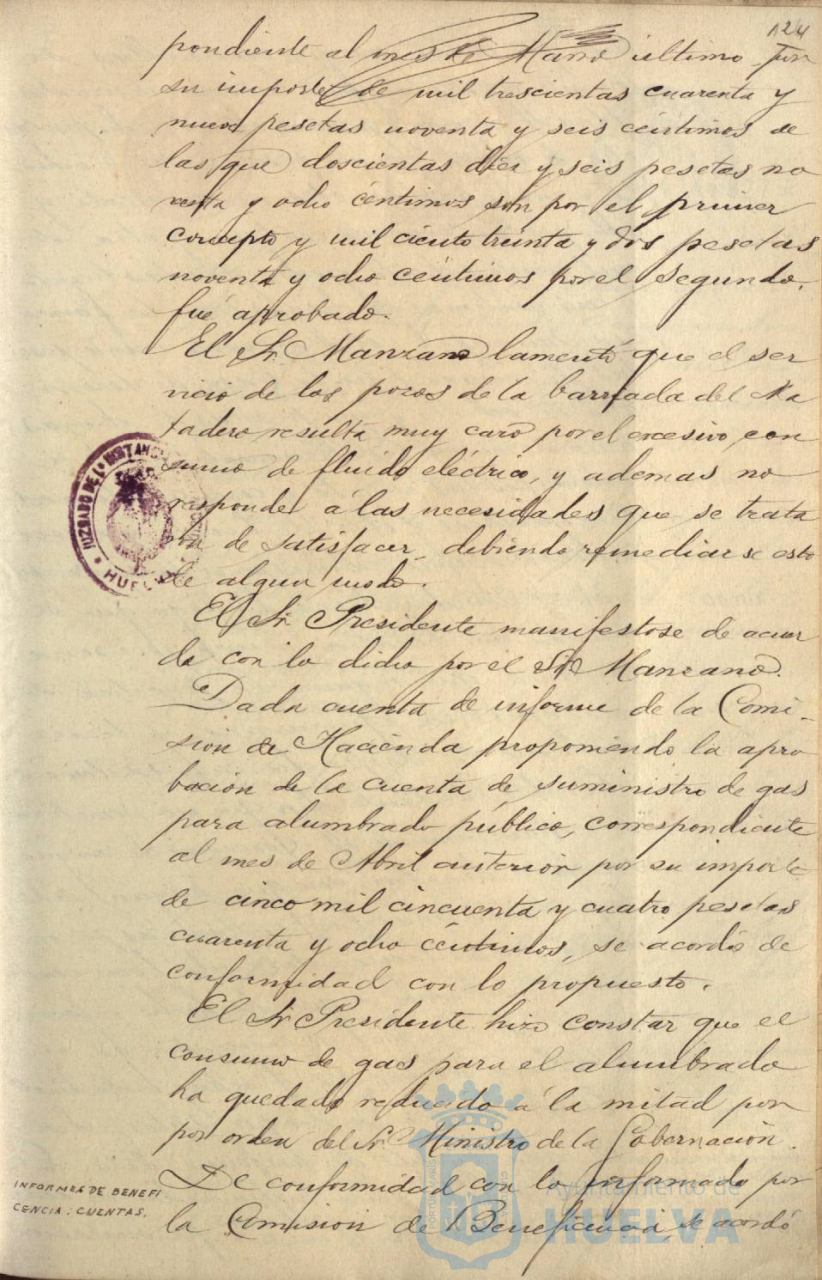 124
pondiente al mes de Marzo último por
su importe de mil trescientas cuarenta y
nueve pesetas noventa y seis céntimos de
las que doscientas diez y seis pesetas no
venta y ocho céntimos son por el primer
concepto y mil ciento treinta y dos pesetas
noventa y ocho céntimos por el segundo,
fué aprobado.
El Sr. Manzano lamentó que el ser
vicio de los pozos de la barriada del Ma
tadero resulta muy caro por el excesivo con
sumo de fluido eléctrico, y ademas no
responde á las necesidades que se trata
ba de satisfacer, debiendo remediarse esto
de algun modo.
El Sr. Presidente manifestose de acuer
do con lo dicho por el Sr. Manzano.
Dada cuenta de informe de la Comi-
sión de Hacienda proponiendo la apro
bación de la cuenta de suministro de gas
para alumbrado público, correspondiente
al mes de Abril anterior por su importe
de cinco mil cincuenta y cuatro pesetas
cuarenta y ocho céntimos, se acordó de
conformidad con lo propuesto.
El Sr Presidente hizo constar que el
consumo de gas para el alumbrado
ha quedado reducido á la mitad por
por orden del Sr. Ministro de la Gobernación.
INFORMES DE BENEFI
CENCIA: CUENTAS.
De conformidad con lo informado por
la Comisión de Beneficencia, se acordó
JUZGADO DE 1ª INSTANCIA
HUELVA
Ayuntamiento de
HUELVA